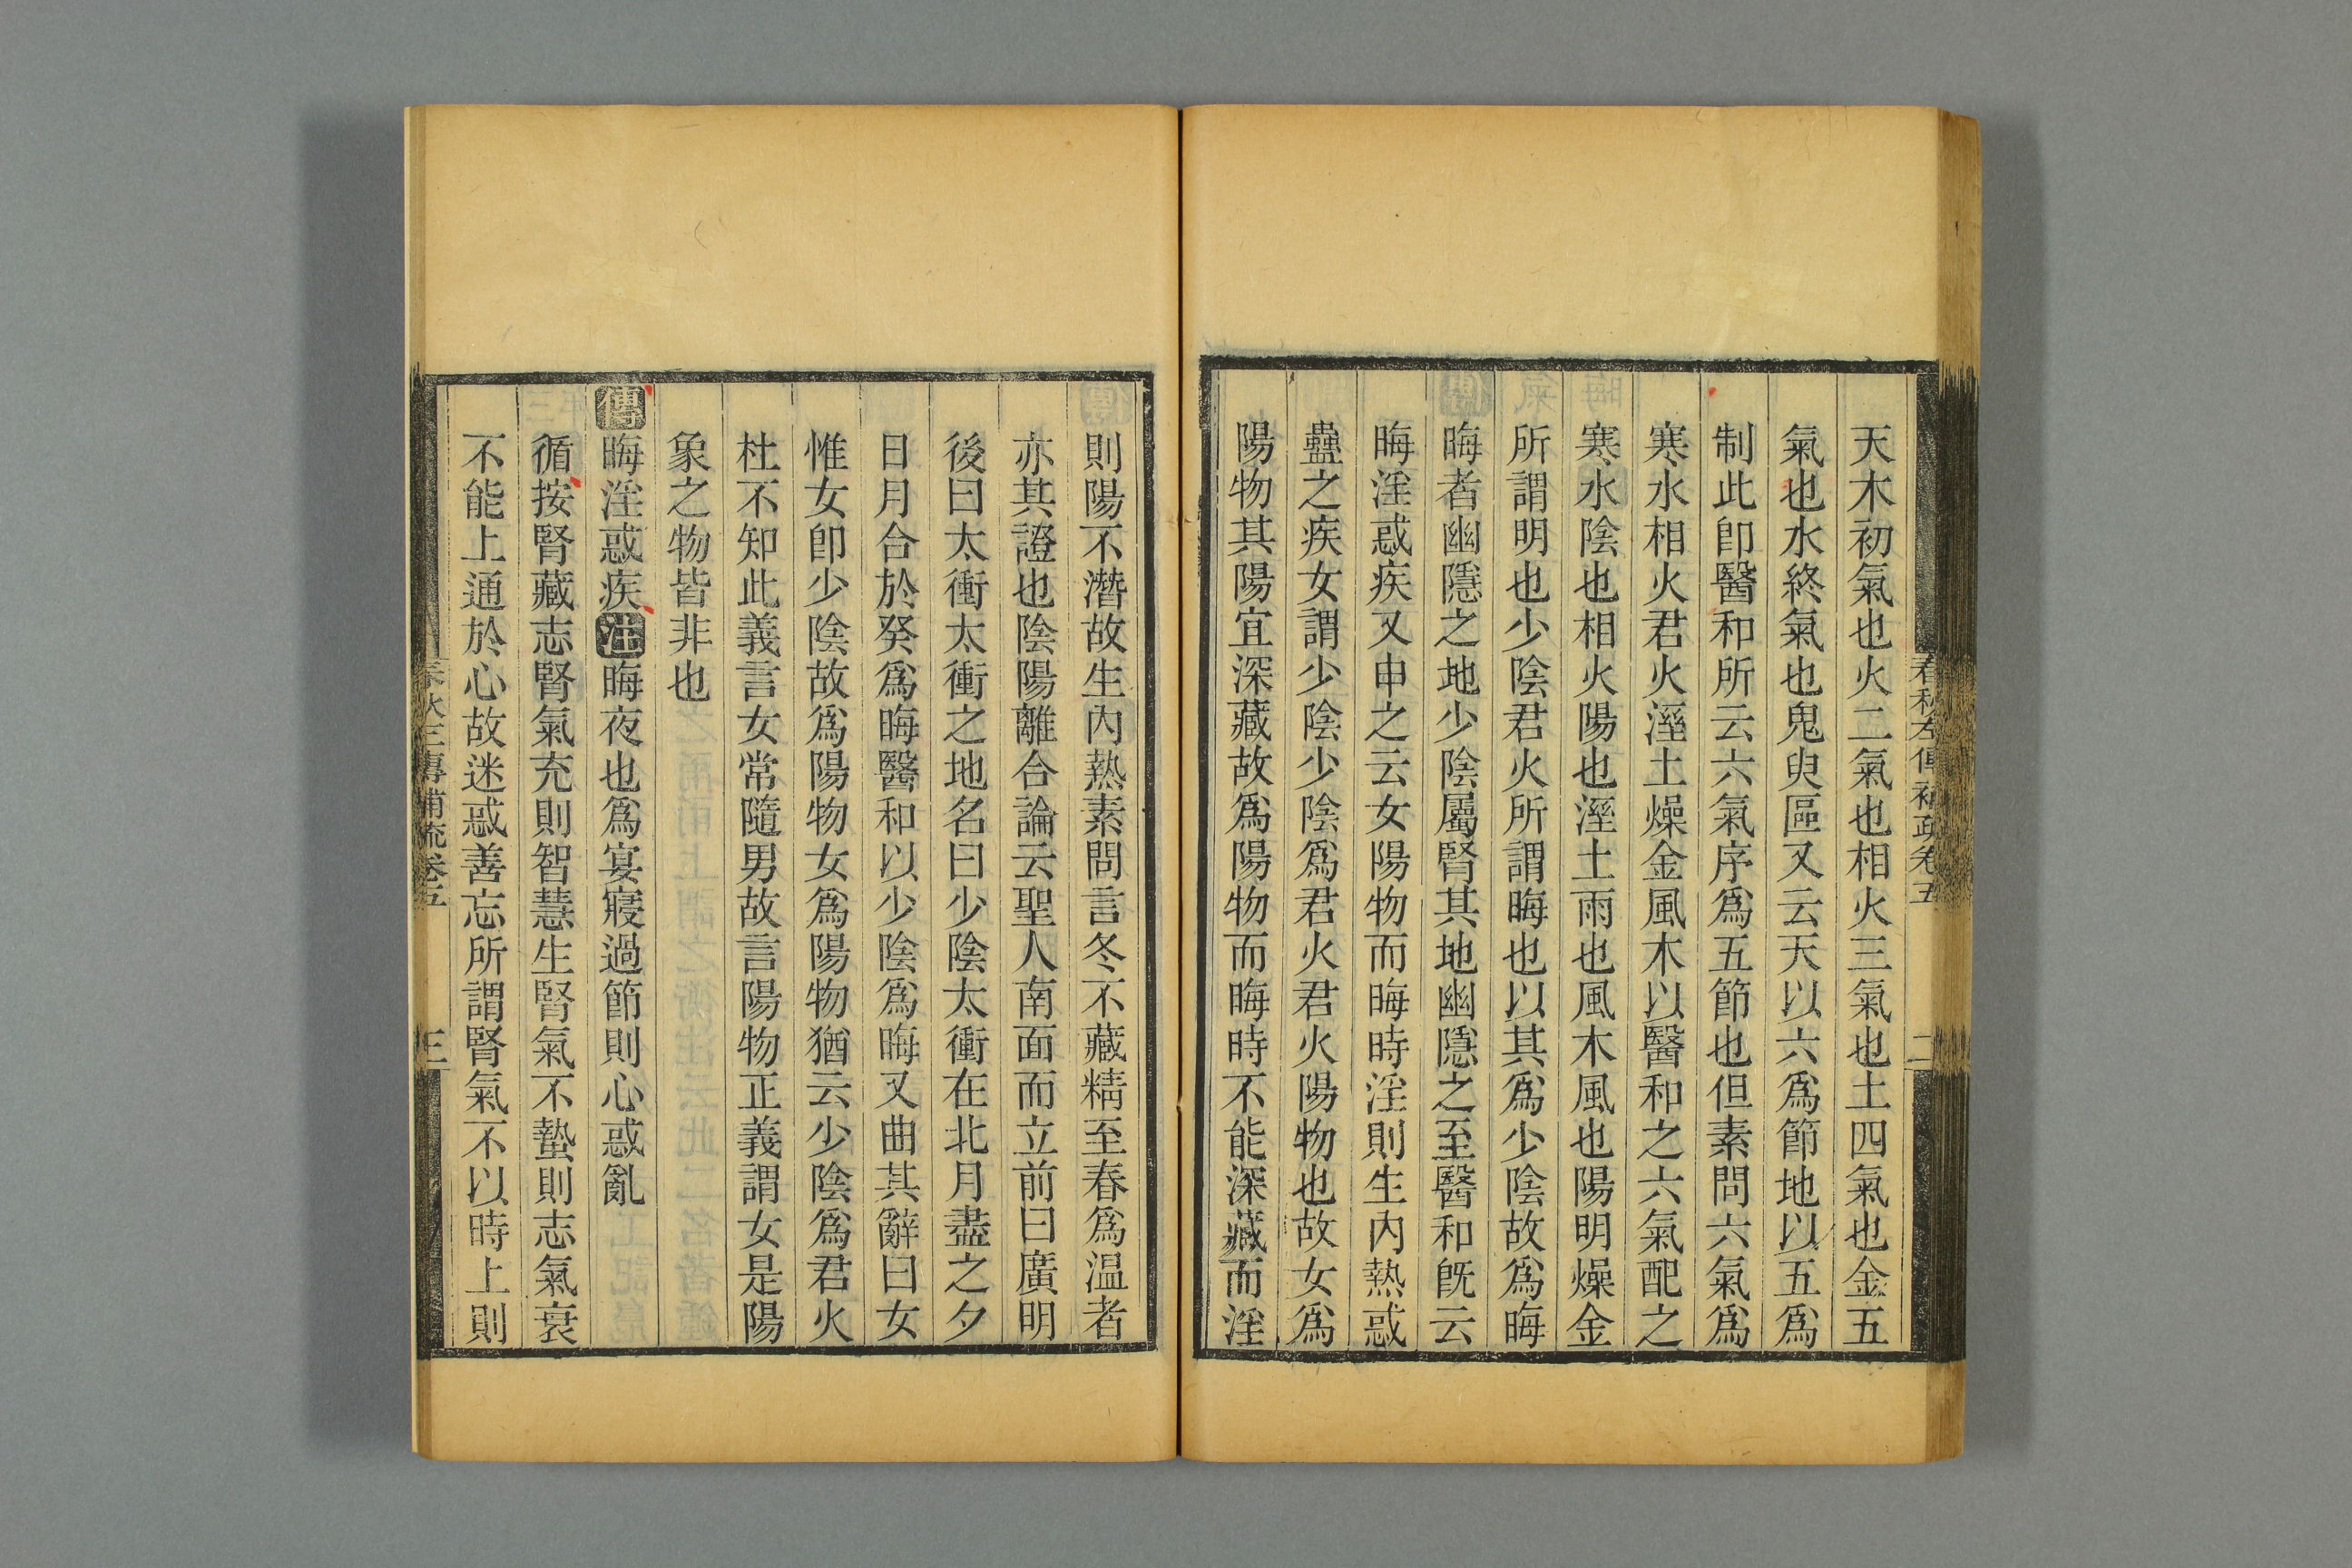 春秋左傳補疏卷五
二
天木初氣也火二氣也相火三氣也土四氣也金五
氣也水終氣也鬼臾區又云天以六爲節地以五爲
制此卽醫和所云六氣序爲五節也但素問六氣爲
寒水相火君火溼土燥金風木以醫和之六氣配之
寒水陰也相火陽也溼土雨也風木風也陽明燥金
所謂明也少陰君火所謂晦也以其爲少陰故爲晦
晦者幽隱之地少陰屬腎其地幽隱之至醫和旣云
晦淫惑疾又申之云女陽物而晦時淫則生內熱惑
蠱之疾女謂少陰少陰爲君火君火陽物也故女爲
陽物其陽宜深藏故爲陽物而晦時不能深藏而淫
則陽不潛故生內熱素問言冬不藏精至春爲温者
亦其證也陰陽離合論云聖人南面而立前曰廣明
後曰太衝太衝之地名曰少陰太衝在北月盡之夕
日月合於癸爲晦醫和以少陰爲晦又曲其辭曰女
惟女卽少陰故爲陽物女爲陽物猶云少陰爲君火
杜不知此義言女常隨男故言陽物正義謂女是陽
象之物皆非也
傳晦淫惑疾注晦夜也爲宴寢過節則心惑亂
循按腎藏志腎氣充則智慧生腎氣不蟄則志氣衰
不能上通於心故迷惑善忘所謂腎氣不以時上則
春秋左傳補疏卷五
三